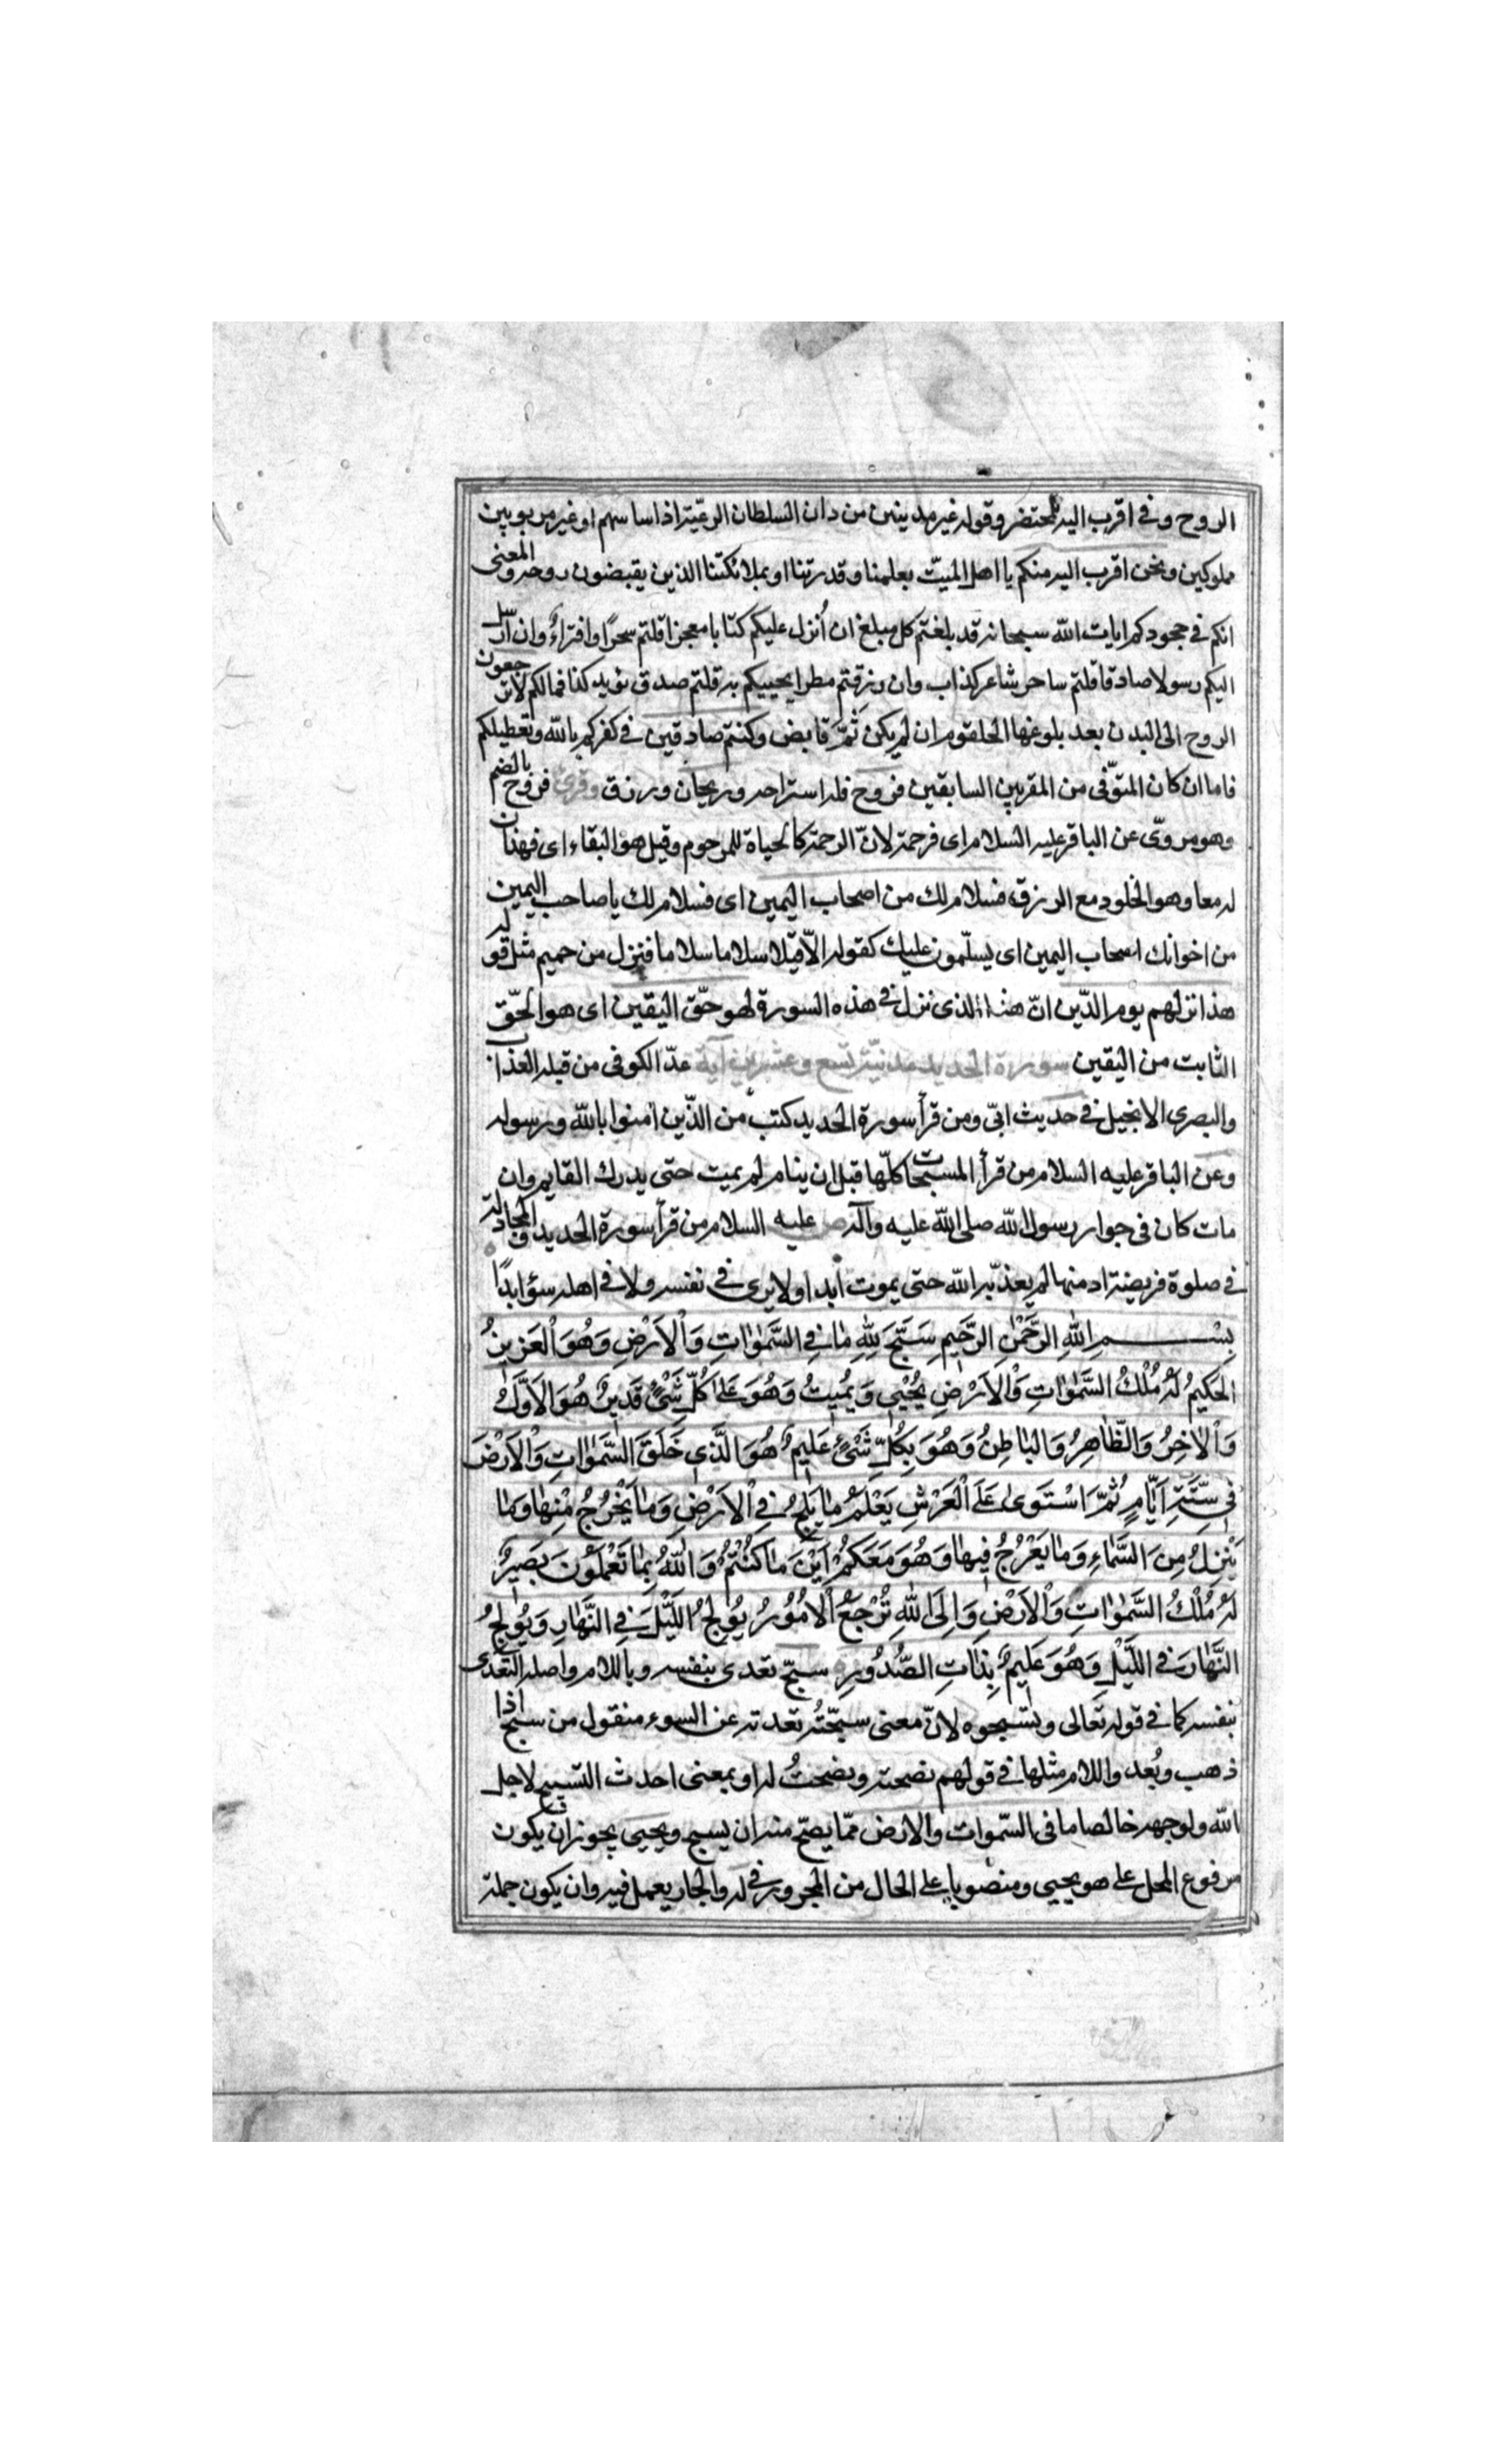 الروح وفى اقرب اليه للمحتضر وقوله غير مدينين من دان السلطان الرعيّة اذا ساسهم او غير مربوبين
مملوكين ونحن اقرب اليه منكم يا اهل الميّت بعلمنا وقدرتنا او بملائكتنا الذين يقبضون روحه والمعنى
انكم فى جحودكم ايات الله سبحانه قد بلغتم كل مبلغ ان أُنزل عليكم كتابا معجزا قلتم سحرًا وافتراءٌ وان ارسل
اليكم رسولا صادقا قلتم ساحر شاعر كذاب وان رزقتم مطرا يحييكم به قلتم صدق نوء كذا فمالكم لا ترجعون
الروح الى البدن بعد بلوغها الحلقوم ان لم يكن ثَمَّ قابض وكنتم صادقين فى كفركم بالله وتعطيلكم
فاما ان كان المتوّفى من المقربين السابقين فروح فله استراحه وريحان ورزق وقرئ فروح بالضم
وهو مروىّ عن الباقر عليه السلام اى فرحمة لانّ الرحمة كالحياة للمرحوم وقيل هو البقاء اى فهذان
له معا وهو الخلود مع الرزق فسلام لك من اصحاب اليمين اى فسلام لك يا صاحب اليمين
من اخوانك اصحاب اليمين اى يسلّمون عليك كقوله الّا قيلا سلاما سلاما فنزل من حميم مثل قوله
هذا نزلهم يوم الدّين انّ هذا الذى نزل فى هذه السورة لهو حقّ اليقين اى هو الحقّ
الثابت من اليقين سورة الحديد مدنيّة تسع وعشرين آية عدّ الكوفى من قبله العذاب
والبصرى الانجيل فى حديث ابىّ ومن قرأ سورة الحديد كتب من الذّين امنوا بالله ورسوله
وعن الباقر عليه السلام من قرأ المسبحات كلّها قبل ان ينام لم يمت حتى يدرك القايم وان
مات كان فى جوار رسول الله صلى الله عليه وآله ص عليه السلام من قرأ سورة الحديد والمجادلة
فى صلوة فريضة ادمنها لم يعذّبه الله حتى يموت ابدا ولا يرى فى نفسه ولا فى اهله سؤا ابدًا
بِسْمِ اللهِ الرَّحْمٰنِ الرَّحِيمِ سَبَّحَ لِلّٰهِ مٰا فِي السَّمٰوٰاتِ وَاْلاَرْضِ وَهُوَ الْعَزِيزُ
الْحَكِيمُ لَهُ مُلْكُ السَّمٰوٰاتِ وَاْلاَرْضِ يُحْيِي وَيُمِيتُ وَهُوَ عَلىٰ كُلِّ شَيْءٍ قَدِيرٌ هُوَ الْاَوَّلُ
وَاْلاٰخِرُ وَالظّٰاهِرُ وَالْبٰاطِنُ وَهُوَ بِكُلِّ شَيْءٍ عَلِيمٌ هُوَ الَّذِي خَلَقَ السَّمٰوٰاتِ وَاْلاَرْضَ
فِي سِتَّةِ اَيّٰامٍ ثُمَّ اسْتَوىٰ عَلَى الْعَرْشِ يَعْلَمُ مٰا يَلِجُ فِي اْلاَرْضِ وَمٰا يَخْرُجُ مِنْهٰا وَمٰا
يَنْزِلُ مِنَ السَّمٰاءِ وَمٰا يَعْرُجُ فِيهٰا وَهُوَ مَعَكُمْ اَيْنَ مٰا كُنْتُمْ وَاللهُ بِمٰا تَعْمَلُونَ بَصِيرٌ
لَهُ مُلْكُ السَّمٰوٰاتِ وَاْلاَرْضِ وَاِلَى اللهِ تُرْجَعُ اْلاُمُورُ يُولِجُ اللَّيْلَ فِي النَّهٰارِ وَيُولِجُ
النَّهٰارَ فِي اللَّيْلِ وَهُوَ عَلِيمٌ بِذٰاتِ الصُّدُورِ سبّح تعدى بنفسه وباللام واصله التعدى
بنفسه كما فى قوله تعالى وتسبحوه لانّ معنى سبّحتُه بعدته عن السوء منقول من سبح اذا
ذهب وبُعد واللام مثلها فى قولهم نصحته ونصحتُ له او بمعنى احدث التسبيح لاجل
الله ولوجهه خالصا ما فى السّموات والارض ممّا يصحّ منه ان يسبح ويحيى يجوز ان يكون
مرفوع المحل على هو يحيى ومنصوبا على الحال من المجرور فى له والجار يعمل فيه وان يكون جملة